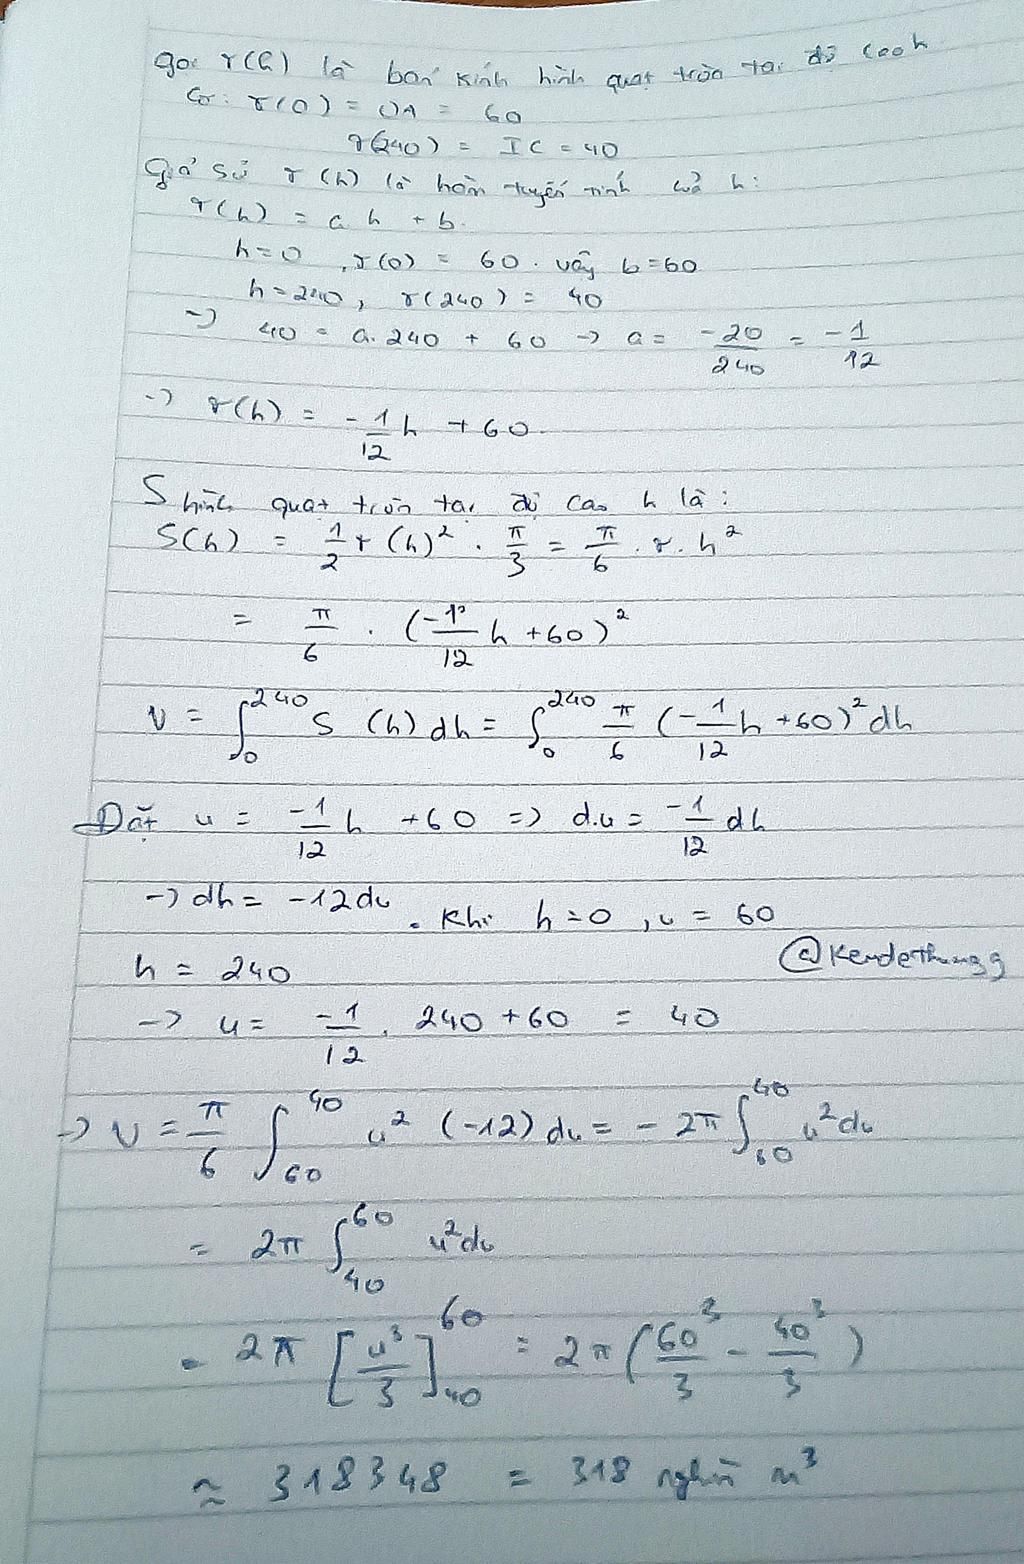 gọi r(h) là bán kính hình quạt tròn tại độ cao h
Có: r(0) = OA = 60
r(240) = IC = 40
Giả sử r(h) là hàm tuyến tính của h:
r(h) = ah + b.
h=0, r(0) = 60. vậy b=60
h=240, r(240) = 40
-> 40 = a.240 + 60 -> a = -20/240 = -1/12
-> r(h) = -1/12 h + 60.
S hình quạt tròn tại độ cao h là:
S(h) = 1/2 r(h)² . π/3 = π/6 . r.h²
= π/6 . (-1/12 h + 60)²
V = ∫₀²⁴⁰ S(h)dh = ∫₀²⁴⁰ π/6 (-1/12 h + 60)² dh
Đặt u = -1/12 h + 60 => d.u = -1/12 dh
-> dh = -12du. Khi h=0, u = 60
@Kendethungg
h = 240
-> u = -1/12 . 240 + 60 = 40
-> V = π/6 ∫₆₀⁴⁰ u² (-12)du = -2π ∫₆₀⁴⁰ u²du
= 2π ∫₄₀⁶⁰ u²du
= 2π [u³/3]₄₀⁶⁰ = 2π (60³/3 - 40³/3)
≈ 318348 = 318 nghìn m³